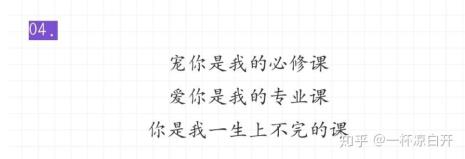 04.
宠你是我的必修课
爱你是我的专业课
你是我一生上不完的课
知乎 @一杯凉白开